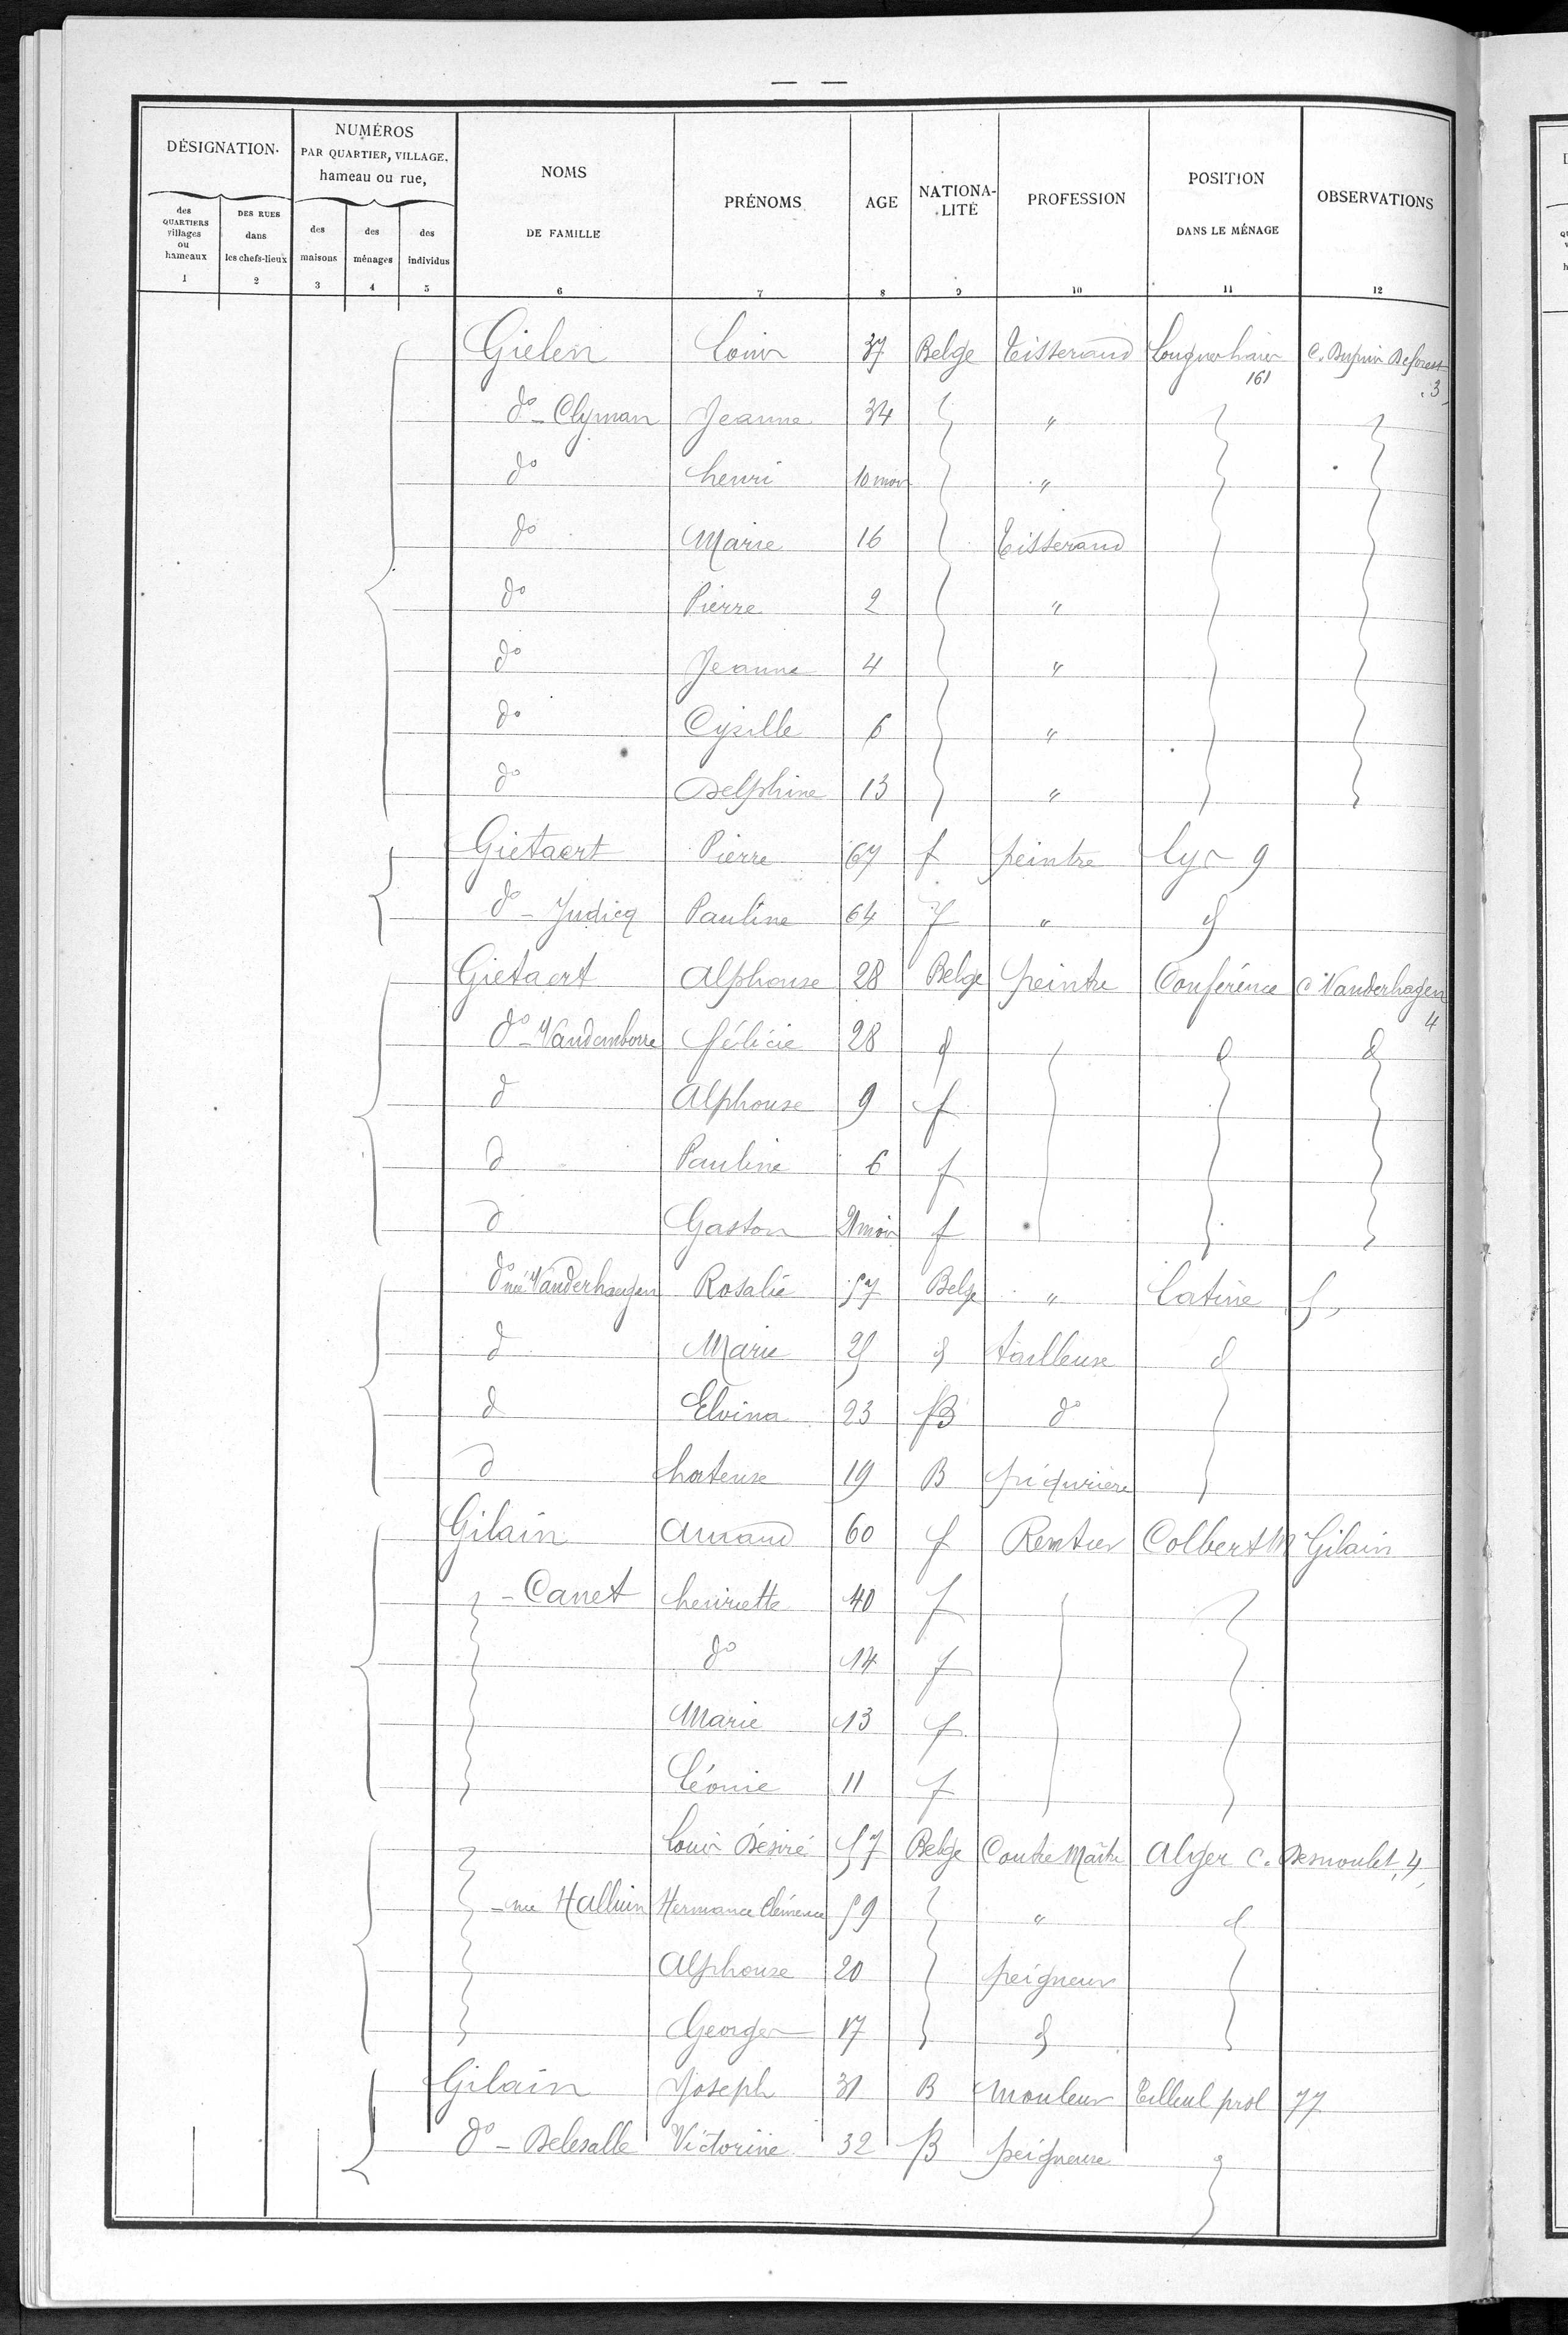 — —
DÉSIGNATION.
NUMÉROS
PAR QUARTIER, VILLAGE.
hameau ou rue,
NOMS
DE FAMILLE
PRÉNOMS
AGE
NATIONA-
LITÉ
PROFESSION
POSITION
DANS LE MÉNAGE
OBSERVATIONS
des
QUARTIERS
villages
ou
hameaux
DES RUES
dans
les chefs-lieux
des
maisons
des
ménages
des
individus
1 2 3 4 5 6 7 8 9 10 11 12
Gielen Louis 37 Belge Tisserand Longueshaies 161 C. Dupuis Deforest 3
do - Clyman Jeanne 34 "
do henri 10 mois "
do Marie 16 Tisserand
do Pierre 2 "
do Jeanne 4 "
do Cyrille 6 "
do Delphine 13 "
Gietaert Pierre 67 f peintre Lys 9
do - Judicq Pauline 64 f " d
Gietaert Alphonse 28 Belge peintre Conférence C. Vanderhagen 4
do - Vandemborre félicie 28 d d d
d Alphonse 9 f
d Pauline 6 f
d Gaston 21 mois f
do née Vanderhaegen Rosalie 57 Belge " Latine 5
d Marie 25 d tailleuse d
d Elvina 23 B do
d hortense 19 B piqurière
Gilain Amand 60 f Rentier Colbert Mn Gilain
- Canet henriette 40 f
do 14 f
Marie 13 f
Léonie 11 f
Louis Désiré 57 Belge Contre Maître Alger C. Desmoulet, 4
- née Halluin Hermance Clémence 59 " d
Alphonse 20 peigneur
Georges 17 d
Gilain Joseph 31 B mouleur Tilleul prol 77
do - Delesalle Victorine 32 B peigneuse